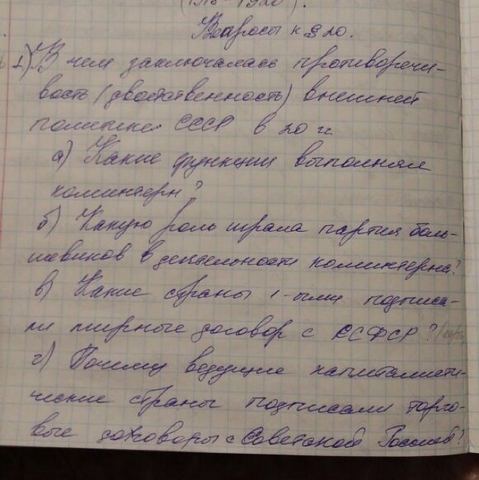 (1918-1920).
Вопросы к § 20.
1) В чем заключалась противоречи-
вость (двойственность) внешней
политики СССР в 20 гг
а) Какие функции выполнял
коминтерн?
б) Какую роль играла партия боль-
шевиков в деятельности коминтерна?
в) Какие страны 1-ыми подписа-
ли мирные договор с РСФСР?
г) Почему ведущие капиталисти-
ческие страны подписали торго-
вые договоры с Советской Россией?